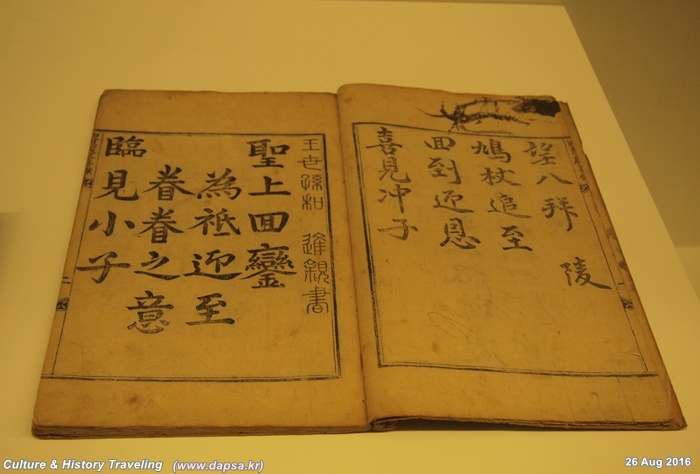 望八拜 陵
鳩杖追至
回到迎恩
喜見冲子
王世孫和 進親書
聖上回鑾
為祗迎至
眷眷之意
臨見小子
Culture & History Traveling (www.dapsa.kr)
26 Aug 2016